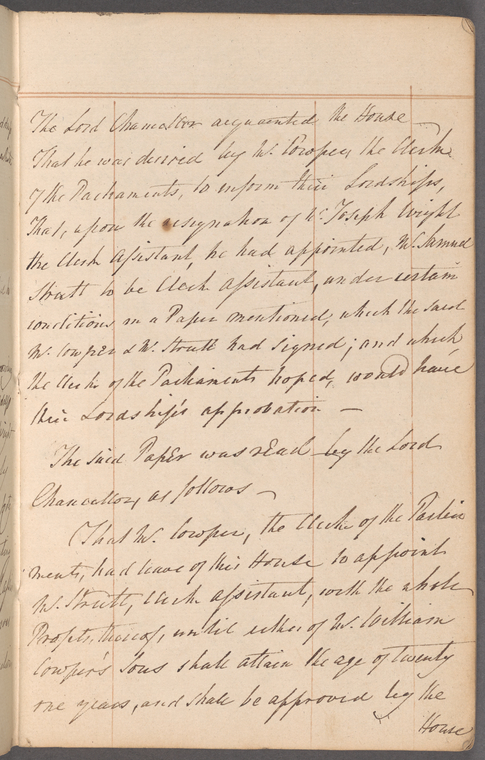 The Lord Chancellor acquainted the House
That he was desired by Mr. Cowper, the Clerk
of the Parliaments, to inform their Lordships,
That, upon the resignation of Mr. Joseph Wright
the Clerk Assistant, he had appointed, Mr. Samuel
Strutt to be Clerk Assistant, under certain
conditions in a Paper mentioned, which the said
Mr. Cowper & Mr. Strutt had signed; and which
the Clerk of the Parliaments hoped, would have
their Lordship's approbation —
The said Paper was read by the Lord
Chancellor, as follows —
"That Mr. Cowper, the Clerk of the Parlia
ments, had leave of this House to appoint
Mr. Strutt, Clerk Assistant, with the whole
Profits thereof, until either of Mr. William
Cowper's Sons shall attain the age of twenty
one years, and shall be approved by the
House